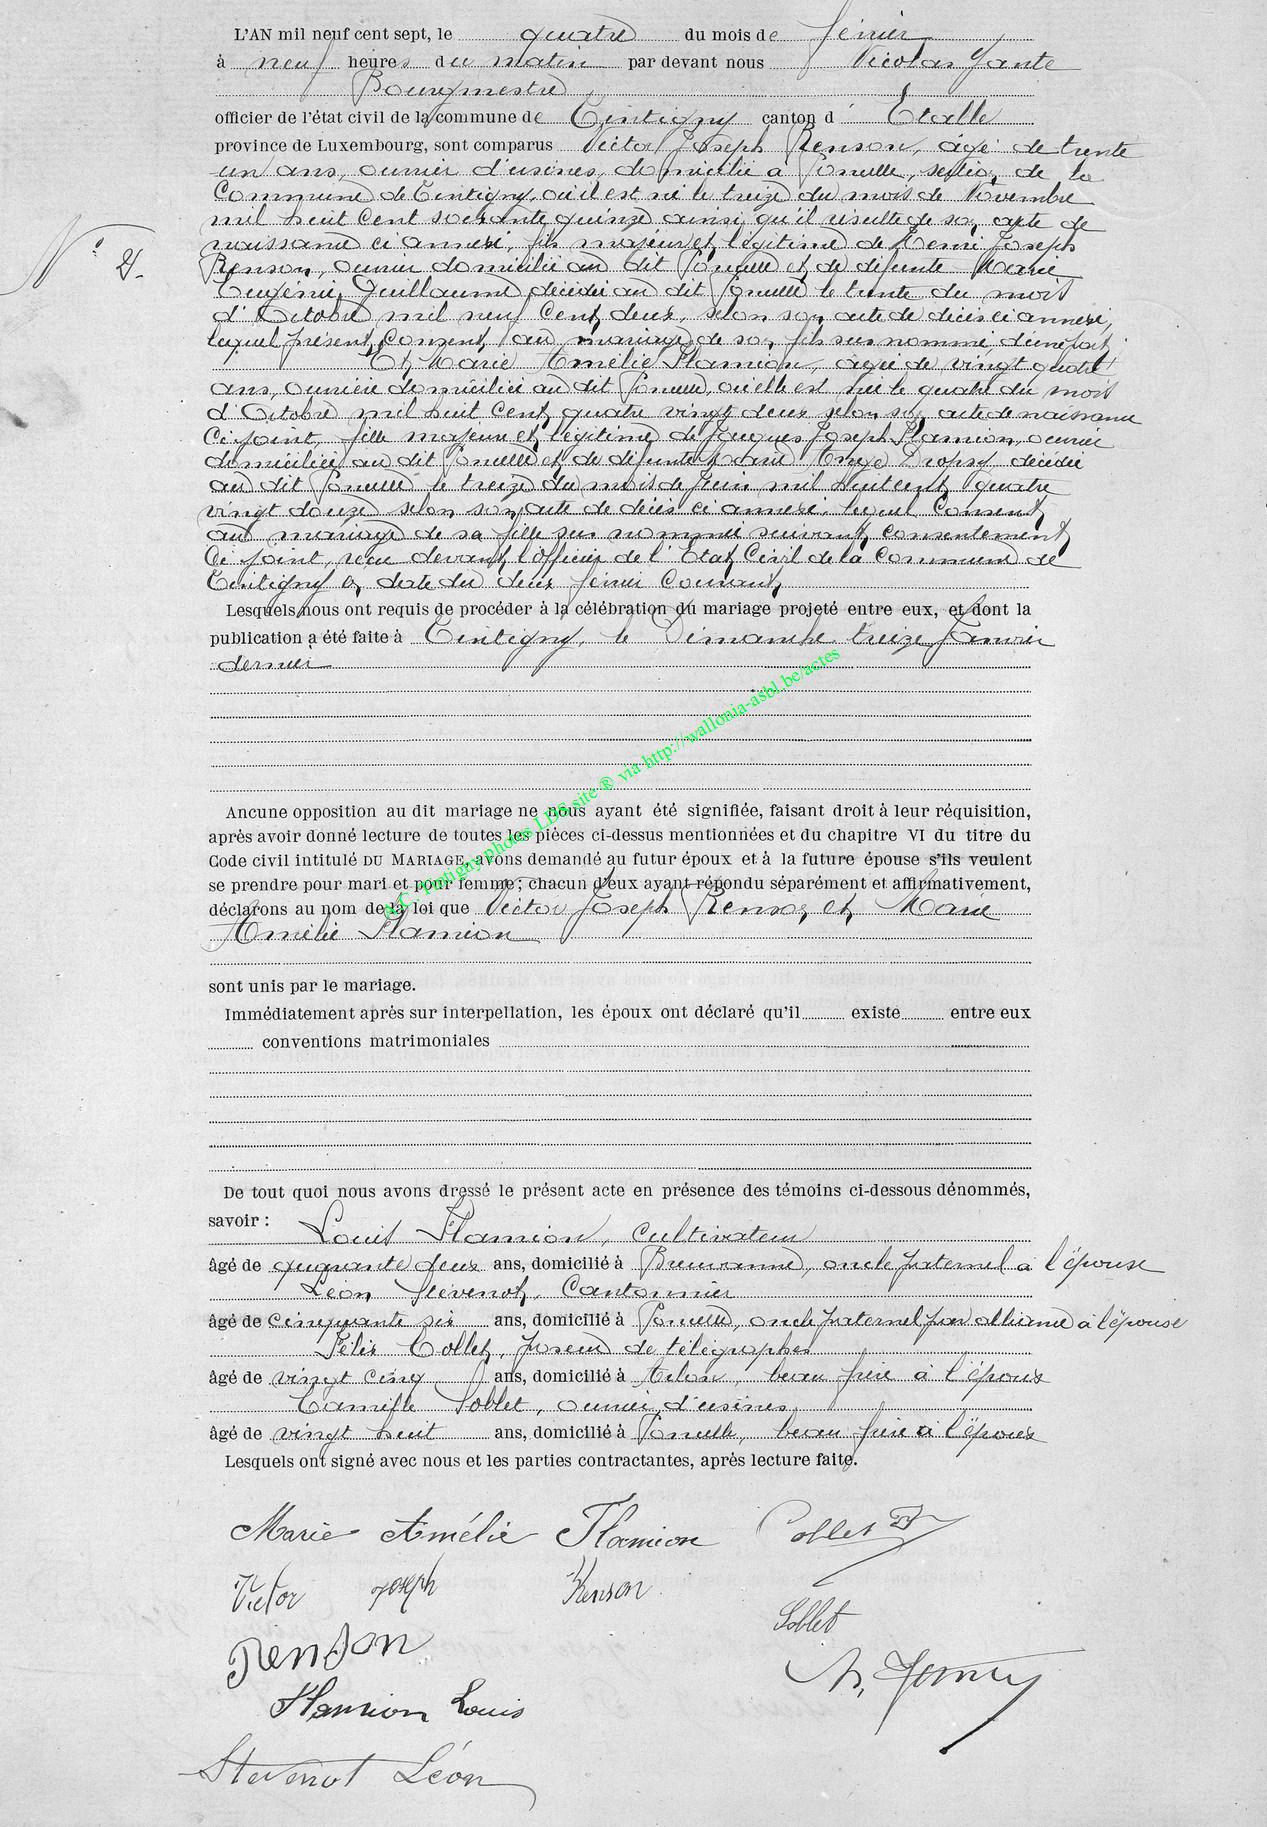 L'AN mil neuf cent sept, le quatre du mois de février
à neuf heures du matin par devant nous Nicolas
Bourgmestre
officier de l'état civil de la commune de Tintigny canton d' Etalle
province de Luxembourg, sont comparus Victor Joseph Renson, âgé de trente
un ans, ouvrier d'usines, domicilié à Poncelle, section de la
Commune de Tintigny, où il est né le treize du mois de Novembre
mil huit cent soixante quinze ainsi qu'il résulte de son acte de
naissance ci annexé, fils majeur et légitime de Henri Joseph
Renson, ouvrier domicilié au dit Poncelle et de défunte Marie
N° 2.
Eugénie Guillaume décédée au dit Poncelle le trente du mois
d'Octobre mil neuf cent deux, selon son acte de décès ci annexé,
lequel présent consent au mariage de son fils sus nommé, d'une part,
Et Marie Amélie Flamion, âgée de vingt quatre
ans, ouvrière domiciliée au dit Poncelle, où elle est née le quatre du mois
d'Octobre mil huit cent quatre vingt deux selon son acte de naissance
ci joint, fille majeure et légitime de Jacques Joseph Flamion, ouvrier
domicilié au dit Poncelle et de défunte Marie Dropsy décédée
au dit Poncelle le treize du mois de Juin mil huit cent quatre
vingt douze selon son acte de décès ci annexé, lequel consent
au mariage de sa fille sus nommée suivant consentement
ci joint, reçu devant l'officier de l'Etat Civil de la Commune de
Tintigny en date du deux février courant.
Lesquels nous ont requis de procéder à la célébration du mariage projeté entre eux, et dont la
publication a été faite à Tintigny, le Dimanche treize Janvier
dernier
A.C. Tintigny photos LDS site ® via http://wallonia-asbl.be/actes
Ancune opposition au dit mariage ne nous ayant été signifiée, faisant droit à leur réquisition,
après avoir donné lecture de toutes les pièces ci-dessus mentionnées et du chapitre VI du titre du
Code civil intitulé DU MARIAGE, avons demandé au futur époux et à la future épouse s'ils veulent
se prendre pour mari et pour femme; chacun d'eux ayant répondu séparément et affirmativement,
déclarons au nom de la loi que Victor Joseph Renson et Marie
Amélie Flamion
sont unis par le mariage.
Immédiatement après sur interpellation, les époux ont déclaré qu'il existe entre eux
conventions matrimoniales
De tout quoi nous avons dressé le présent acte en présence des témoins ci-dessous dénommés,
savoir : Louis Flamion, cultivateur
âgé de quarante deux ans, domicilié à Breuvanne, oncle paternel à l'épouse
Léon Stévenot, Cantonnier
âgé de cinquante six ans, domicilié à Poncelle, oncle paternel par alliance à l'épouse
Félix Collet, poseur de télégraphes
âgé de vingt cinq ans, domicilié à Arlon, beau frère à l'époux
Camille Soblet, ouvrier d'usines
âgé de vingt huit ans, domicilié à Poncelle, beau frère à l'époux
Lesquels ont signé avec nous et les parties contractantes, après lecture faite.
Marie Amélie Flamion Collet F
Victor Joseph Renson
Soblet
Renson
Flamion Louis
Stevenot Léon